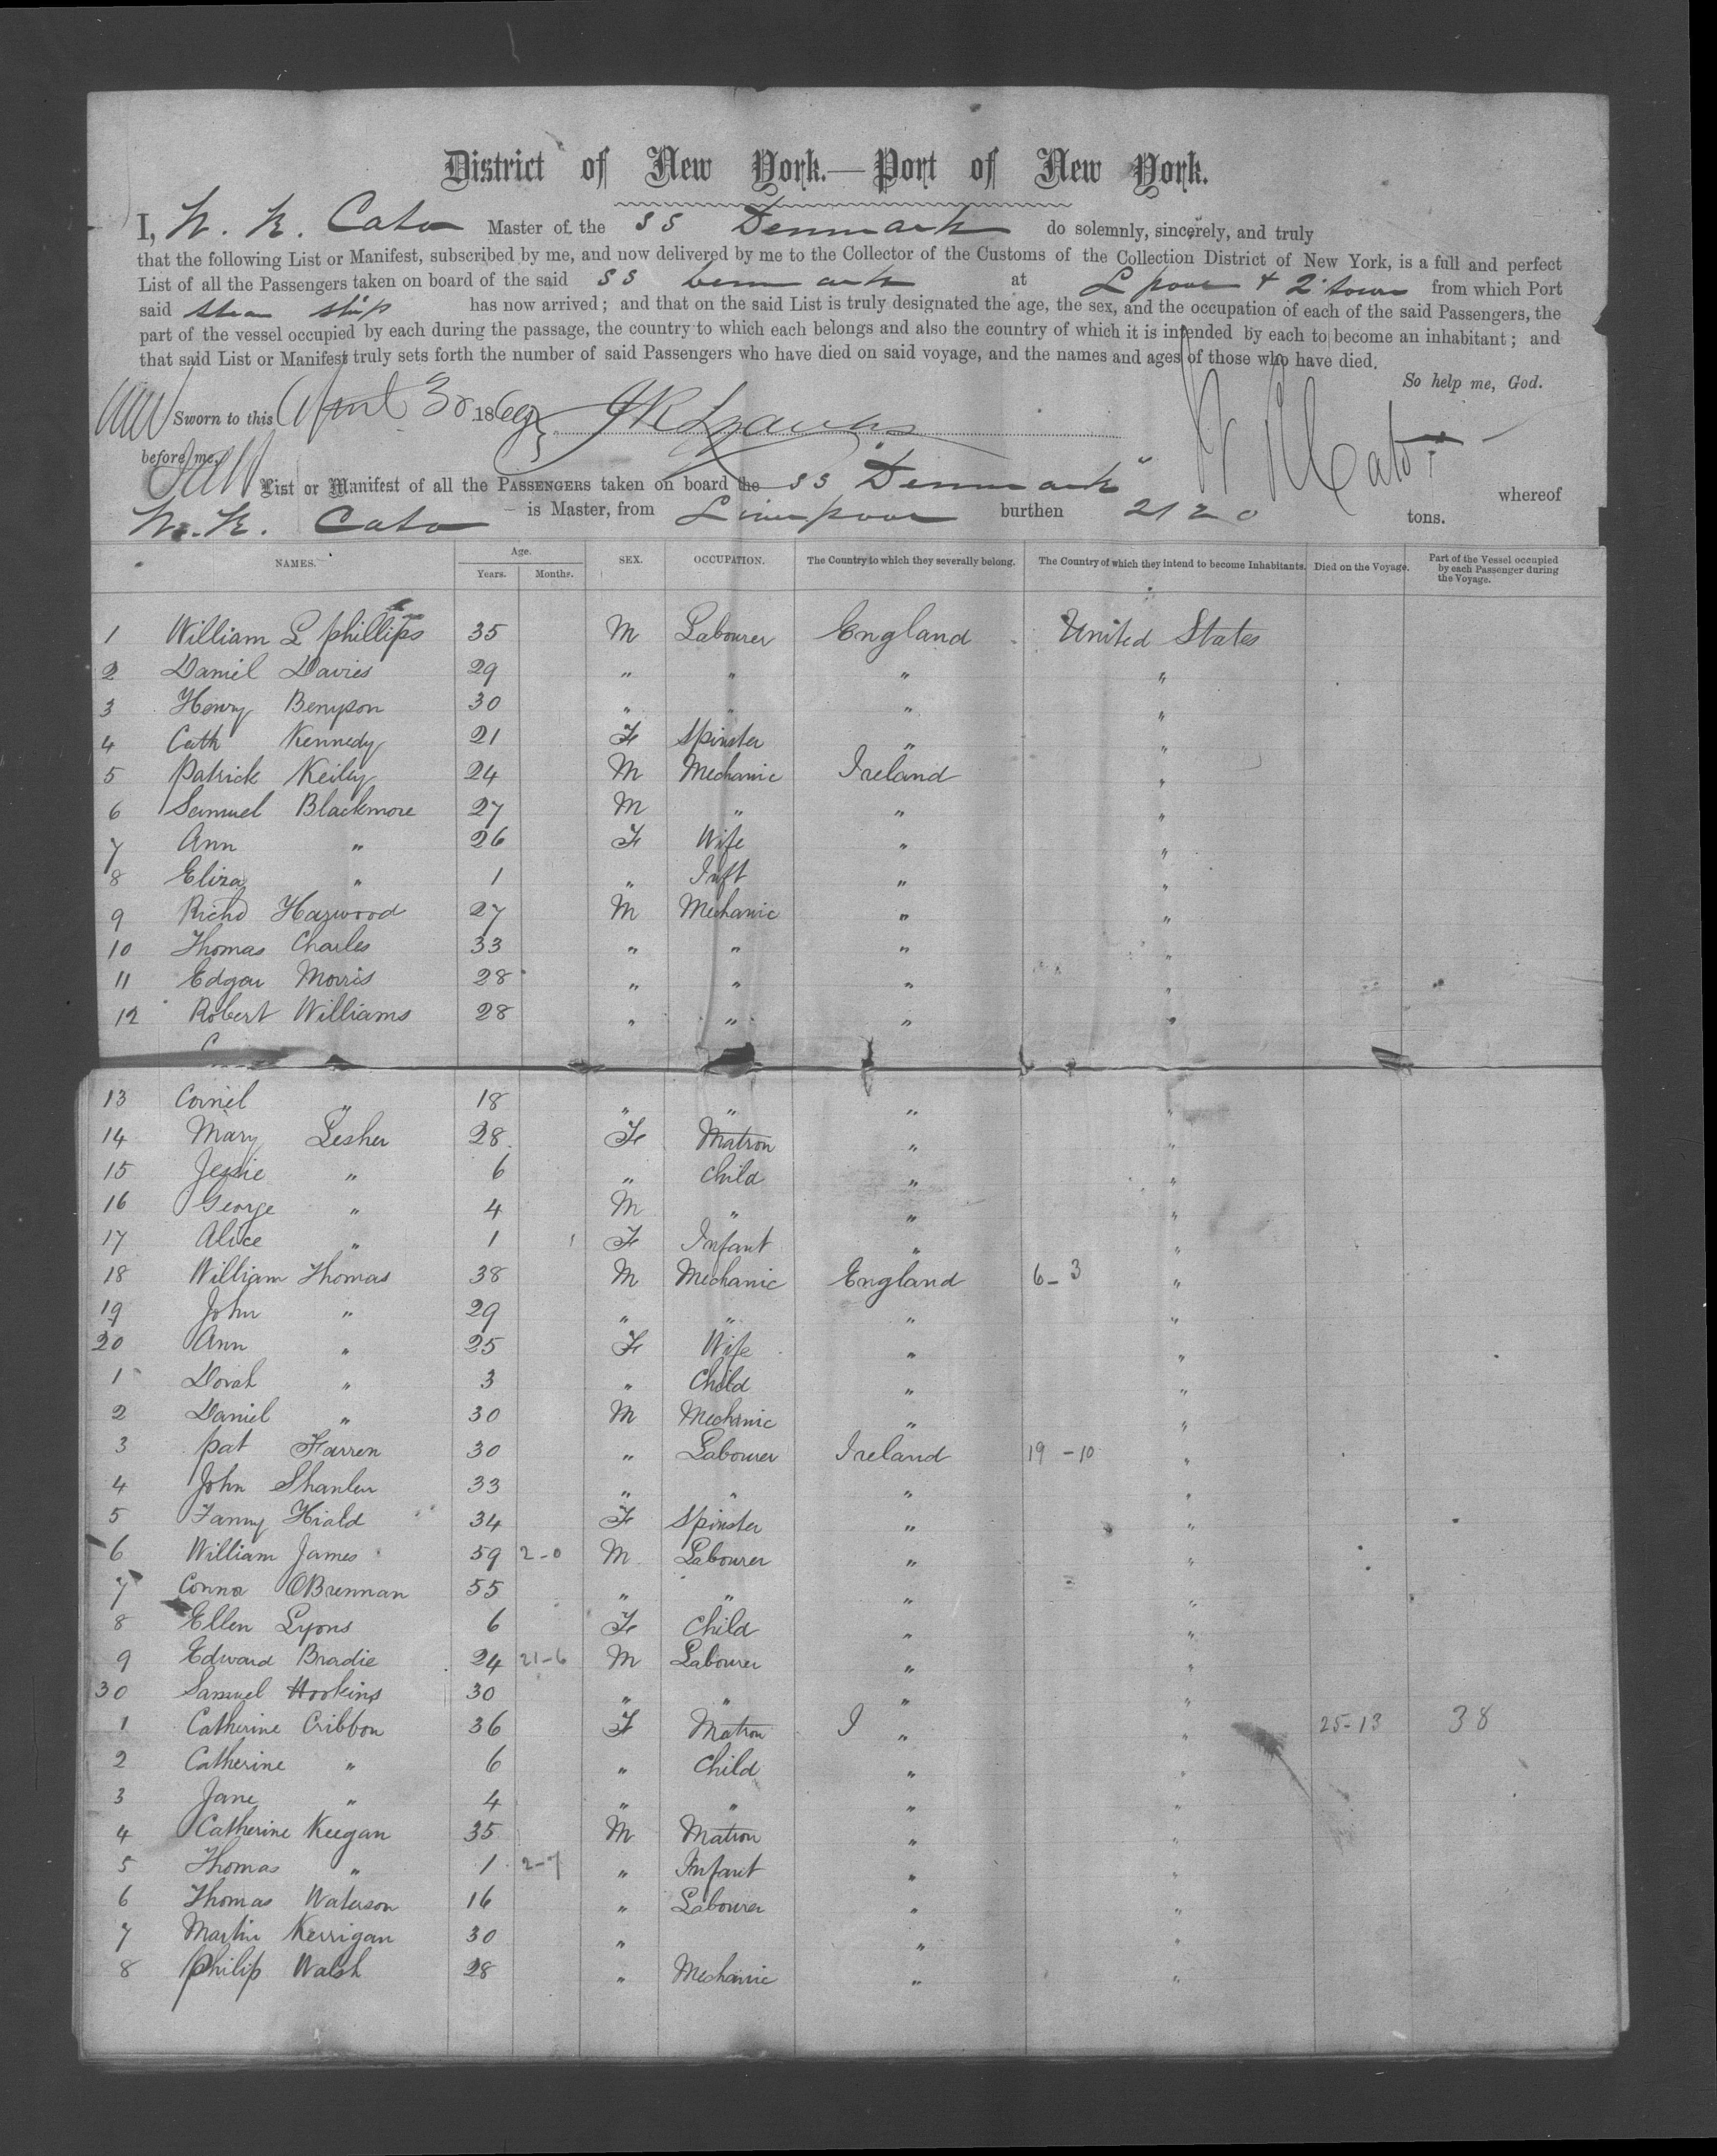 District of New York.—Port of New York.
I, W. R. Cato Master of the SS Denmark do solemnly, sincerely, and truly
that the following List or Manifest, subscribed by me, and now delivered by me to the Collector of the Customs of the Collection District of New York, is a full and perfect
List of all the Passengers taken on board of the said SS Denmark at Lpool & Qtown from which Port
said Steam Ship has now arrived; and that on the said List is truly designated the age, the sex, and the occupation of each of the said Passengers, the
part of the vessel occupied by each during the passage, the country to which each belongs and also the country of which it is intended by each to become an inhabitant; and
that said List or Manifest truly sets forth the number of said Passengers who have died on said voyage, and the names and ages of those who have died.
So help me, God.
Sworn to this April 30 1869
before me,
List or Manifest of all the PASSENGERS taken on board the SS Denmark whereof
W. R. Cato is Master, from Liverpool burthen 2120 tons.
NAMES. Age. Years. Months. SEX. OCCUPATION. The Country to which they severally belong. The Country of which they intend to become Inhabitants. Died on the Voyage. Part of the Vessel occupied by each Passenger during the Voyage.
1 William L phillips 35 M Labourer England United States
2 Daniel Davies 29 " " " "
3 Henry Benyson 30 " " " "
4 Cath Kennedy 21 F Spinster " "
5 Patrick Keily 24 M Mechanic Ireland "
6 Samuel Blackmore 27 M " " "
7 Ann " 26 F Wife " "
8 Eliza " 1 " Inft " "
9 Richd Haywood 27 M Mechanic " "
10 Thomas Charles 33 " " " "
11 Edgar Morris 28 " " " "
12 Robert Williams 28 " " " "
13 Cornel " 18 " " " "
14 Mary Lesher 28 F Matron " "
15 Jessie " 6 " Child " "
16 George " 4 M " " "
17 Alice " 1 F Infant " "
18 William Thomas 38 M Mechanic England 6-3 "
19 John " 29 " " " "
20 Ann " 25 F Wife " "
1 Dorah " 3 " Child " "
2 Daniel " 30 M Mechanic " "
3 Pat Farren 30 " Labourer Ireland 19-10 "
4 John Shanlen 33 " " " "
5 Fanny Hiald 34 F Spinster " "
6 William James 59 2-0 M Labourer " "
7 Connor OBrennan 55 " " " "
8 Ellen Lyons 6 F Child " "
9 Edward Bradie 24 21-6 M Labourer " "
30 Samuel Hookins 30 " " " "
1 Catherine Cribbon 36 F Matron I " " 25-13 38
2 Catherine " 6 " Child " "
3 Jane " 4 " " " "
4 Catherine Keegan 35 M Matron " "
5 Thomas " 1 2-7 " Infant " "
6 Thomas Waterson 16 " Labourer " "
7 Martin Kerrigan 30 " " "
8 Philip Walsh 28 " Mechanic " "